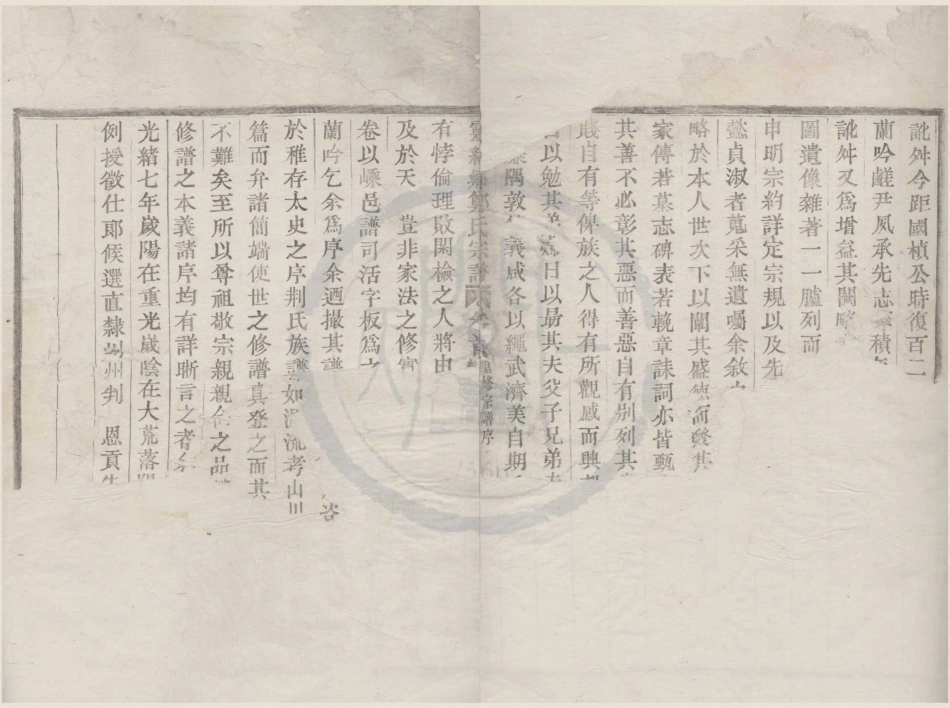 訛舛今距國楨公時復百二
蘭吟鹺尹夙承先志積
訛舛又爲增益其闕略
圖遺像雜著一一臚列而
申明宗約詳定宗規以及先
懿貞淑者蒐采無遺囑余敘
略於本人世次下以闡其盛德而發其
家傳若墓志碑表若輓章誄詞亦皆甄
其善不必彰其惡而善惡自有別列其
自有等俾族之人得有所觀感而興
以勉其 日以勗其夫父子兄弟
隅敦 義咸各以繩武濟美自期
鄭氏宗譜
重修宗譜序
有悖倫理敗閑檢之人將由
及於天 豈非家法之修
卷以嵊邑譜司活字板爲
蘭吟乞余爲序余迺撮其譜
咨
於稚存太史之序荆氏族譜如溯流考山川
篇而弁諸簡端使世之修譜真登之而其
不難矣至所以尊祖敬宗親親 之品
修譜之本義諸序均有詳晰言之者
光緒七年歲陽在重光歲陰在大荒落
例授徵仕郎候選直隸州州判 恩貢